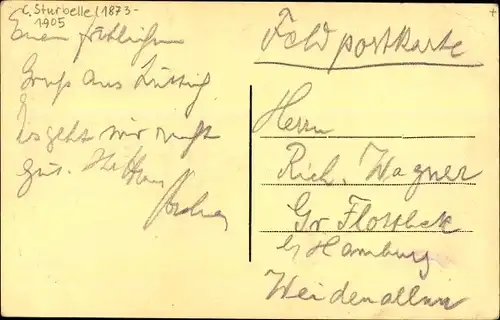 C. Sturbelle (1873-
1905
Einen fröhlichen
Gruß aus Lüttich.
Es geht mir recht
gut.
Feldpostkarte
Herrn
Rich. Wagner
Gr Flottbek
b/ Hamburg
Weidenallee